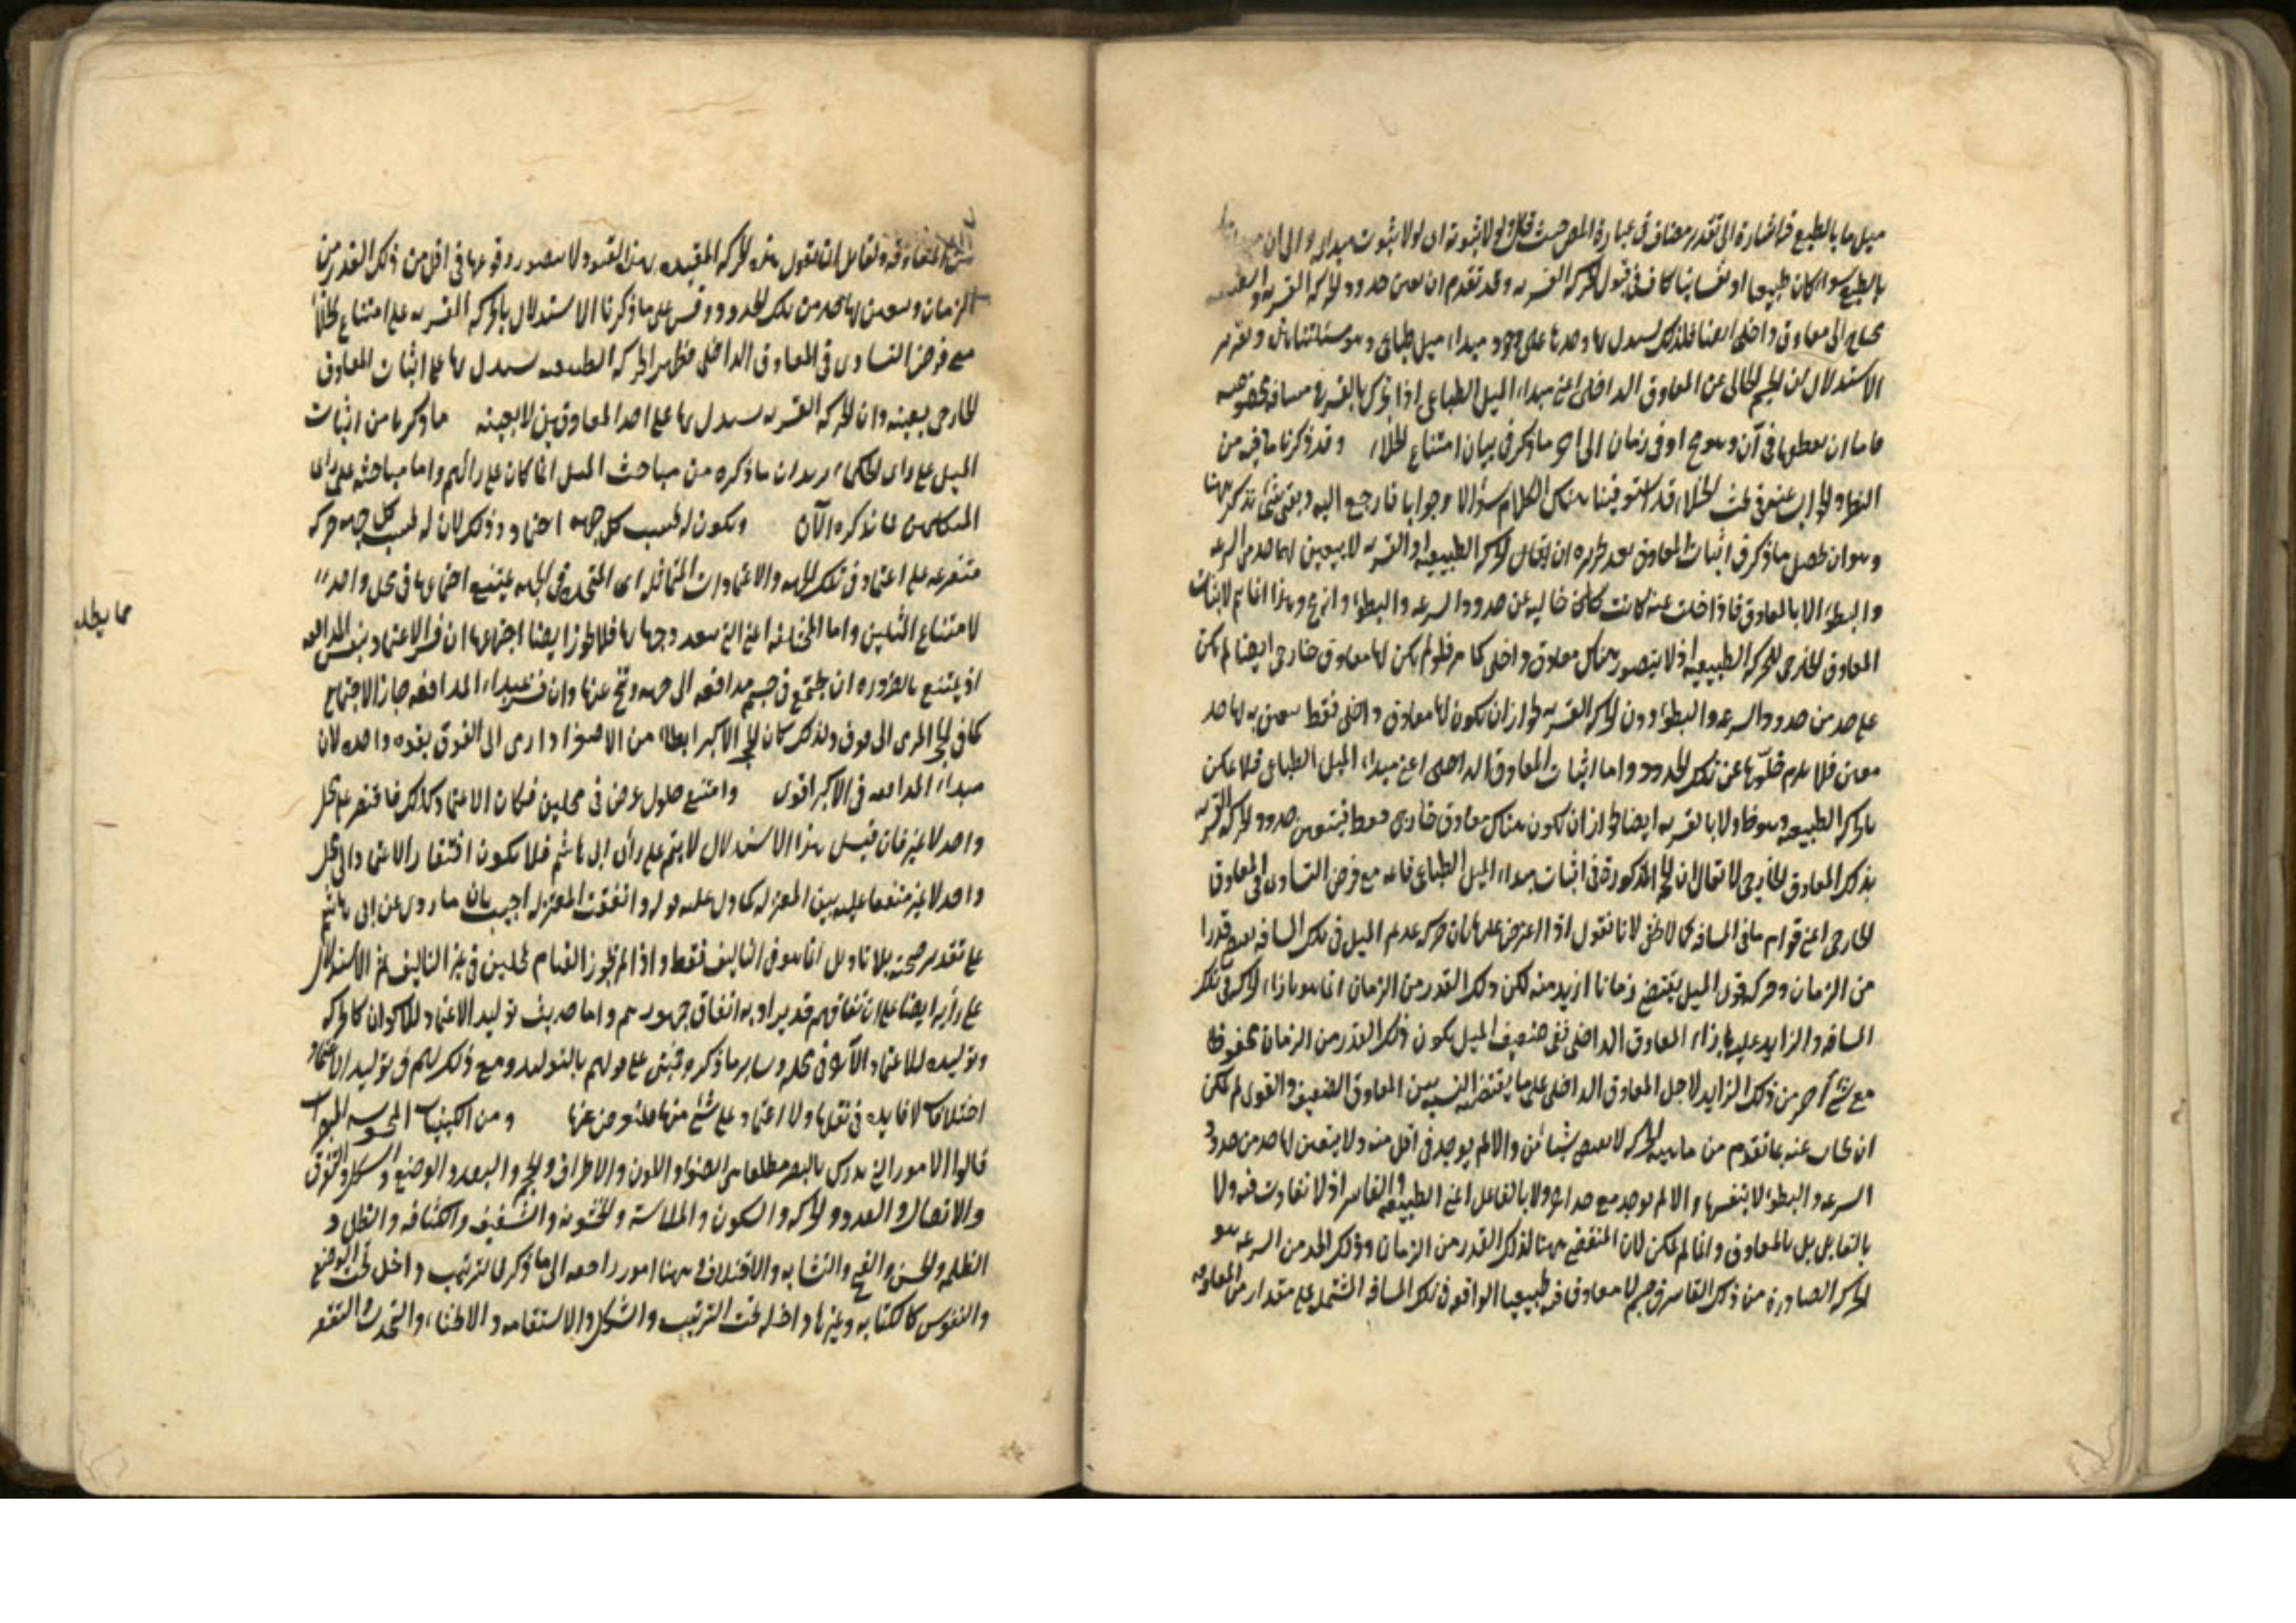 ميل ما بالطبع فيه اشارة الى تقدير مضاف فى عبارة المص حيث قال ولولا ثبوته اى لولا ثبوت مبدائه والى ان
بالطبع سواء كان طبيعيا او نفسانيا كاف فى قبول الحركة القسرية وقد تقدم ان تعين حدود الحركة القسرية
محتاج الى معاوق داخلى ايضا فلذلك يستدل بها وحدها على وجود مبداء ميل طباعى وهو مستأنف وتقرير
الاستدلال ان الجسم الخالى عن المعاوق الداخلى اعنى مبداء الميل الطباعى اذا تحرك بالقسر فى مسافة مخصوصة
فاما ان يقطعها فى آن وهو مح او فى زمان الى اخر ما ذكر فى بيان امتناع الخلاء وقد ذكرنا ما فيه من
النظر والجواب عنه فى بحث الخلاء وقد استوفينا هناك الكلام سؤالا وجوابا فارجع اليه وبقى شئ نذكره هنا
وهو ان محصل ما ذكر فى اثبات المعاوق بعد تحريره ان يقال الحركة الطبيعية او القسرية لا يتعين لها حد من السرعة
والبطؤ الا بالمعاوق فاذا خلت عنه كانت خالية عن حدود السرعة والبطؤ وانه مح وهذا انما تم لاثبات
المعاوق الخارجى للحركة الطبيعية اذ لا يتصور هناك معاوق داخلى كما مر فلو لم يكن لها معاوق خارجى ايضا لم يكن
على حد من حدود السرعة والبطؤ دون الحركة القسرية لجواز ان يكون لها معاوق داخلى فقط يتعين به لها حد
معين فلا يلزم خلوها عن تلك الحدود واما اثبات المعاوق الداخلى اعنى مبداء الميل الطباعى فلا يمكن
بالحركة الطبيعية وهو ظ ولا بالقسرية ايضا لجواز ان يكون هناك معاوق خارجى فقط فيتعين حدود الحركة القسرية
بذلك المعاوق الخارجى لا يقال ان الحجة المذكورة فى اثبات مبداء الميل الطباعى قائمة مع فرض التساوى فى المعاوق
الخارجى اعنى قوام ما فى المسافة كما لا يخفى لانا نقول اذا اعترض عليها بان حركة عديم الميل فى تلك المسافة يقتضى قدرا
من الزمان وحركة قوى الميل يقتضى زمانا ازيد منه لكن ذلك القدر من الزمان انما هو بازاء الحركة فى تلك
المسافة والزايد عليه بازاء المعاوق الداخلى ففى ضعيف الميل يكون ذلك القدر من الزمان محفوظا
مع شئ آخر من ذلك الزايد لاجل المعاوق الداخلى على ما يقتضيه النسبة بين المعاوق الضعيف والقوى لم يمكن
ان يجاب عنه بما تقدم من ان ماهية الحركة لا يقتضى شيئا من والا لم يوجد فى اقل منه ولا يتعين لها حد من حدود
السرعة والبطؤ لا بنفسها والا لم يوجد مع حد اخر ولا بالفاعل اعنى الطبيعة والقاسر اذ لا تفاوت فيه ولا
بالقابل بل بالمعاوق وانما لم يمكن لان المقتضى ههنا لذلك القدر من الزمان وذلك الحد من السرعة هو
الحركة الصادرة من ذلك القاسر فى جسم لا معاوق فيه طبيعيا الواقعة فى تلك المسافة المشتمل على مقدار من المعاوقة
ولقايل ان يقول هذه الحركة المقيدة بهذا القيود لا يتصور وقوعها فى اقل من ذلك القدر من
الزمان ويتعين لها حد من تلك الحدود وقس على ما ذكرنا الاستدلال بالحركة القسرية على امتناع الخلاء
مع فرض التساوى فى المعاوق الداخلى فظهر ان الحركة الطبيعية يستدل بها على اثبات المعاوق
الخارجى بعينه وان الحركة القسرية يستدل بها على احد المعاوقين لا بعينه ما ذكرنا من اثبات
الميل على راى الحكماء يريد ان ما ذكره من مباحث الميل انما كان على رائهم واما مباحثه على راى
المتكلمين فما نذكره الآن ويكون له بحسب كل جهة اعتماد وذلك لان له بحسب كل جهة حركة
متفرعة على اعتماد فى تلك الجهة والاعتمادات المتماثلة اى المتحدة فى الجهة يمتنع اجتماعها فى محل واحد
لامتناع المثلين واما المختلفة اعنى التى تتعدد جهاتها فلا يجوز ايضا اجتماعها ان فسر الاعتماد بنفس المدافعة
اذ يمتنع بالضرورة ان يجتمع فى جسم مدافعة الى جهة وتنح عنها وان فسر بمبداء المدافعة جاز الاجتماع
كما فى الحجر المرمى الى فوق ولذلك كان الحجر الاكبر ابطاء من الاصغر اذا رمى الى الفوق بقوة واحدة لان
مبداء المدافعة فى الاكبر اقوى وامتنع حلول عرض فى محلين فكان الاعتماد كذلك فاقتصر على محل
واحد لا غير فان قيل هذا الاستدلال لا يتم على راى ابى هاشم فلا يكون افتقار الاعتماد الى محل
واحد لا غير متفقا عليه بين المعتزلة كما دل عليه قوله واتفقت المعتزلة اجيب بان ما روى عن ابى هاشم
على تقدير صحته بلا تاويل انما هو فى التاليف فقط واذا لم يجوز القيام بمحلين فى غير التاليف تم الاستدلال
على رأيه ايضا على ان اتفاقهم قد يراد به اتفاق جمهورهم واما حديث توليد الاعتماد للاكوان كالحركة
وتوليده للاعتماد الآخر فى محله وساير ما ذكر فمبنى على قولهم بالتولد ومع ذلك لهم فى توليد الاعتماد
اختلافات لا فايدة فى نقلها ولا اعتماد على شئ منها فلنعرض عنها ومن الكيفيات المحسوسة المبصرات
قالوا الامور التى تدرك بالبصر مطلقا هى الضوء واللون والاطراف والحجم والبعد والوضع والشكل والتفرق
والاتصال والعدد والحركة والسكون والملاسة والخشونة والشفيف والكثافة والظل و
الظلمة والحسن والقبح والتشابه والاختلاف وههنا امور راجعة الى ما ذكر كالترتيب داخل تحت الوضع
والنقوش كالكتابة وغيرها داخلة تحت الترتيب والشكل والاستقامة والانحناء والتحدب والتقعر